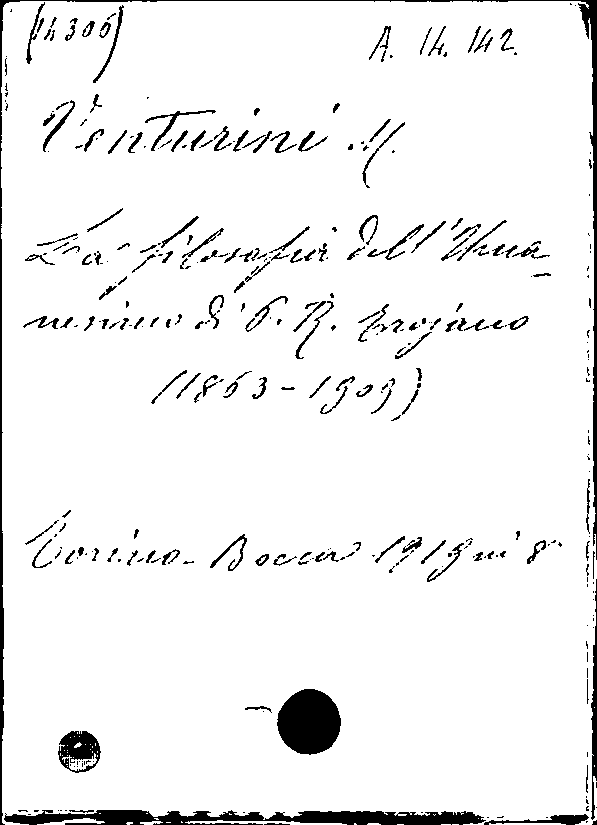 (14306)
A. 14. 142.
Venturini M.
La filosofia dell'Uma-
nesimo di P. R. Trojano
(1863-1909)
Torino - Bocca 1919 in 8°